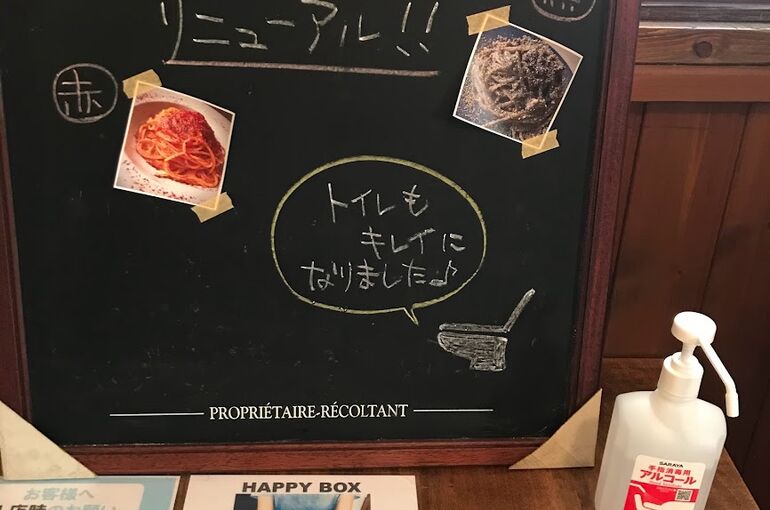 リニューアル!!
赤
トイレも
キレイに
なりました♪
PROPRIÉTAIRE-RÉCOLTANT
お客様へ
HAPPY BOX
SARAYA
手指消毒用
アルコール